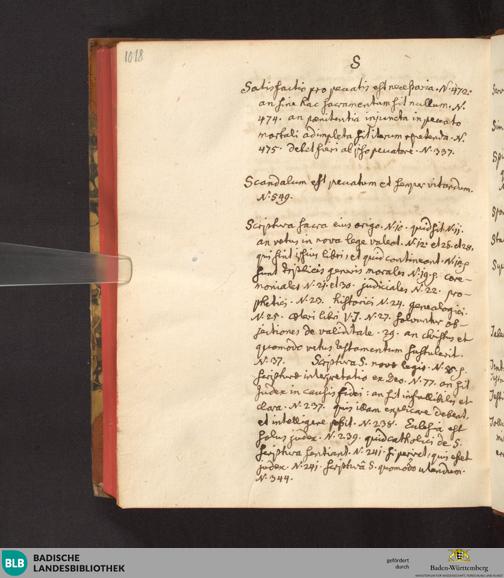 1018
S
Satisfactio pro peccatis est necessaria. N. 470.
an sine hac sacramentum sit nullum. N.
474. an poenitentia injuncta in peccato
mortali adimpleta sit iterum repetenda. N.
475. debet fieri ab ipso peccatore. N. 337.
Scandalum est peccatum et semper vitandum.
N. 549.
Scriptura sacra eius origo. N. 10. quid sit N. 11.
an vetus in nova lege valeat. N. 12. et 25. et 28.
qui sint ipsius libri, et quid contineant. N. 18.
sunt triplicis generis morales N. 19. cere-
moniales N. 21. et 30. judiciales N. 22. pro-
phetici. N. 23. historici N. 24. genealogici.
N. 25. caeteri libri V. T. N. 27. solvuntur ob-
jectiones de validitate. 29. an christus et
quomodo vetus testamentum sustulerit.
N. 37. Scriptura S. novae legis. N. 38.
scripturae interpretatio ex Deo. N. 77. an sit
judex in causis fidei. an sit infallibilis et
clara. N. 237. quis illam explicare debeat
et intelligere possit. N. 238. Ecclesia est
solus judex. N. 239. quid catholici de S.
scriptura sentiant. N. 241. si periret, quis esset
judex. N. 241. scriptura S. quomodo utendum.
N. 344.
BLB
BADISCHE
LANDESBIBLIOTHEK
gefördert
durch
Baden-Württemberg